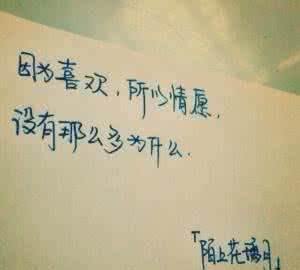 因为喜欢，所以情愿，
没有那么多为什么.
「陌上花满月」